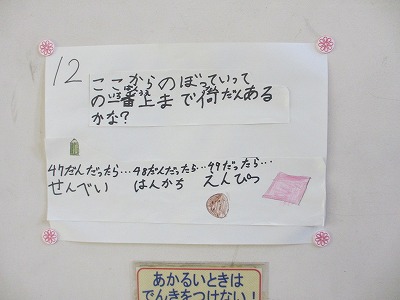 12
ここからのぼっていって
の一番上まで何だんある
かな?
47だんだったら…48だんだったら…49だったら…
せんべい はんかち えんぴつ
あかるいときは
でんきをつけない!